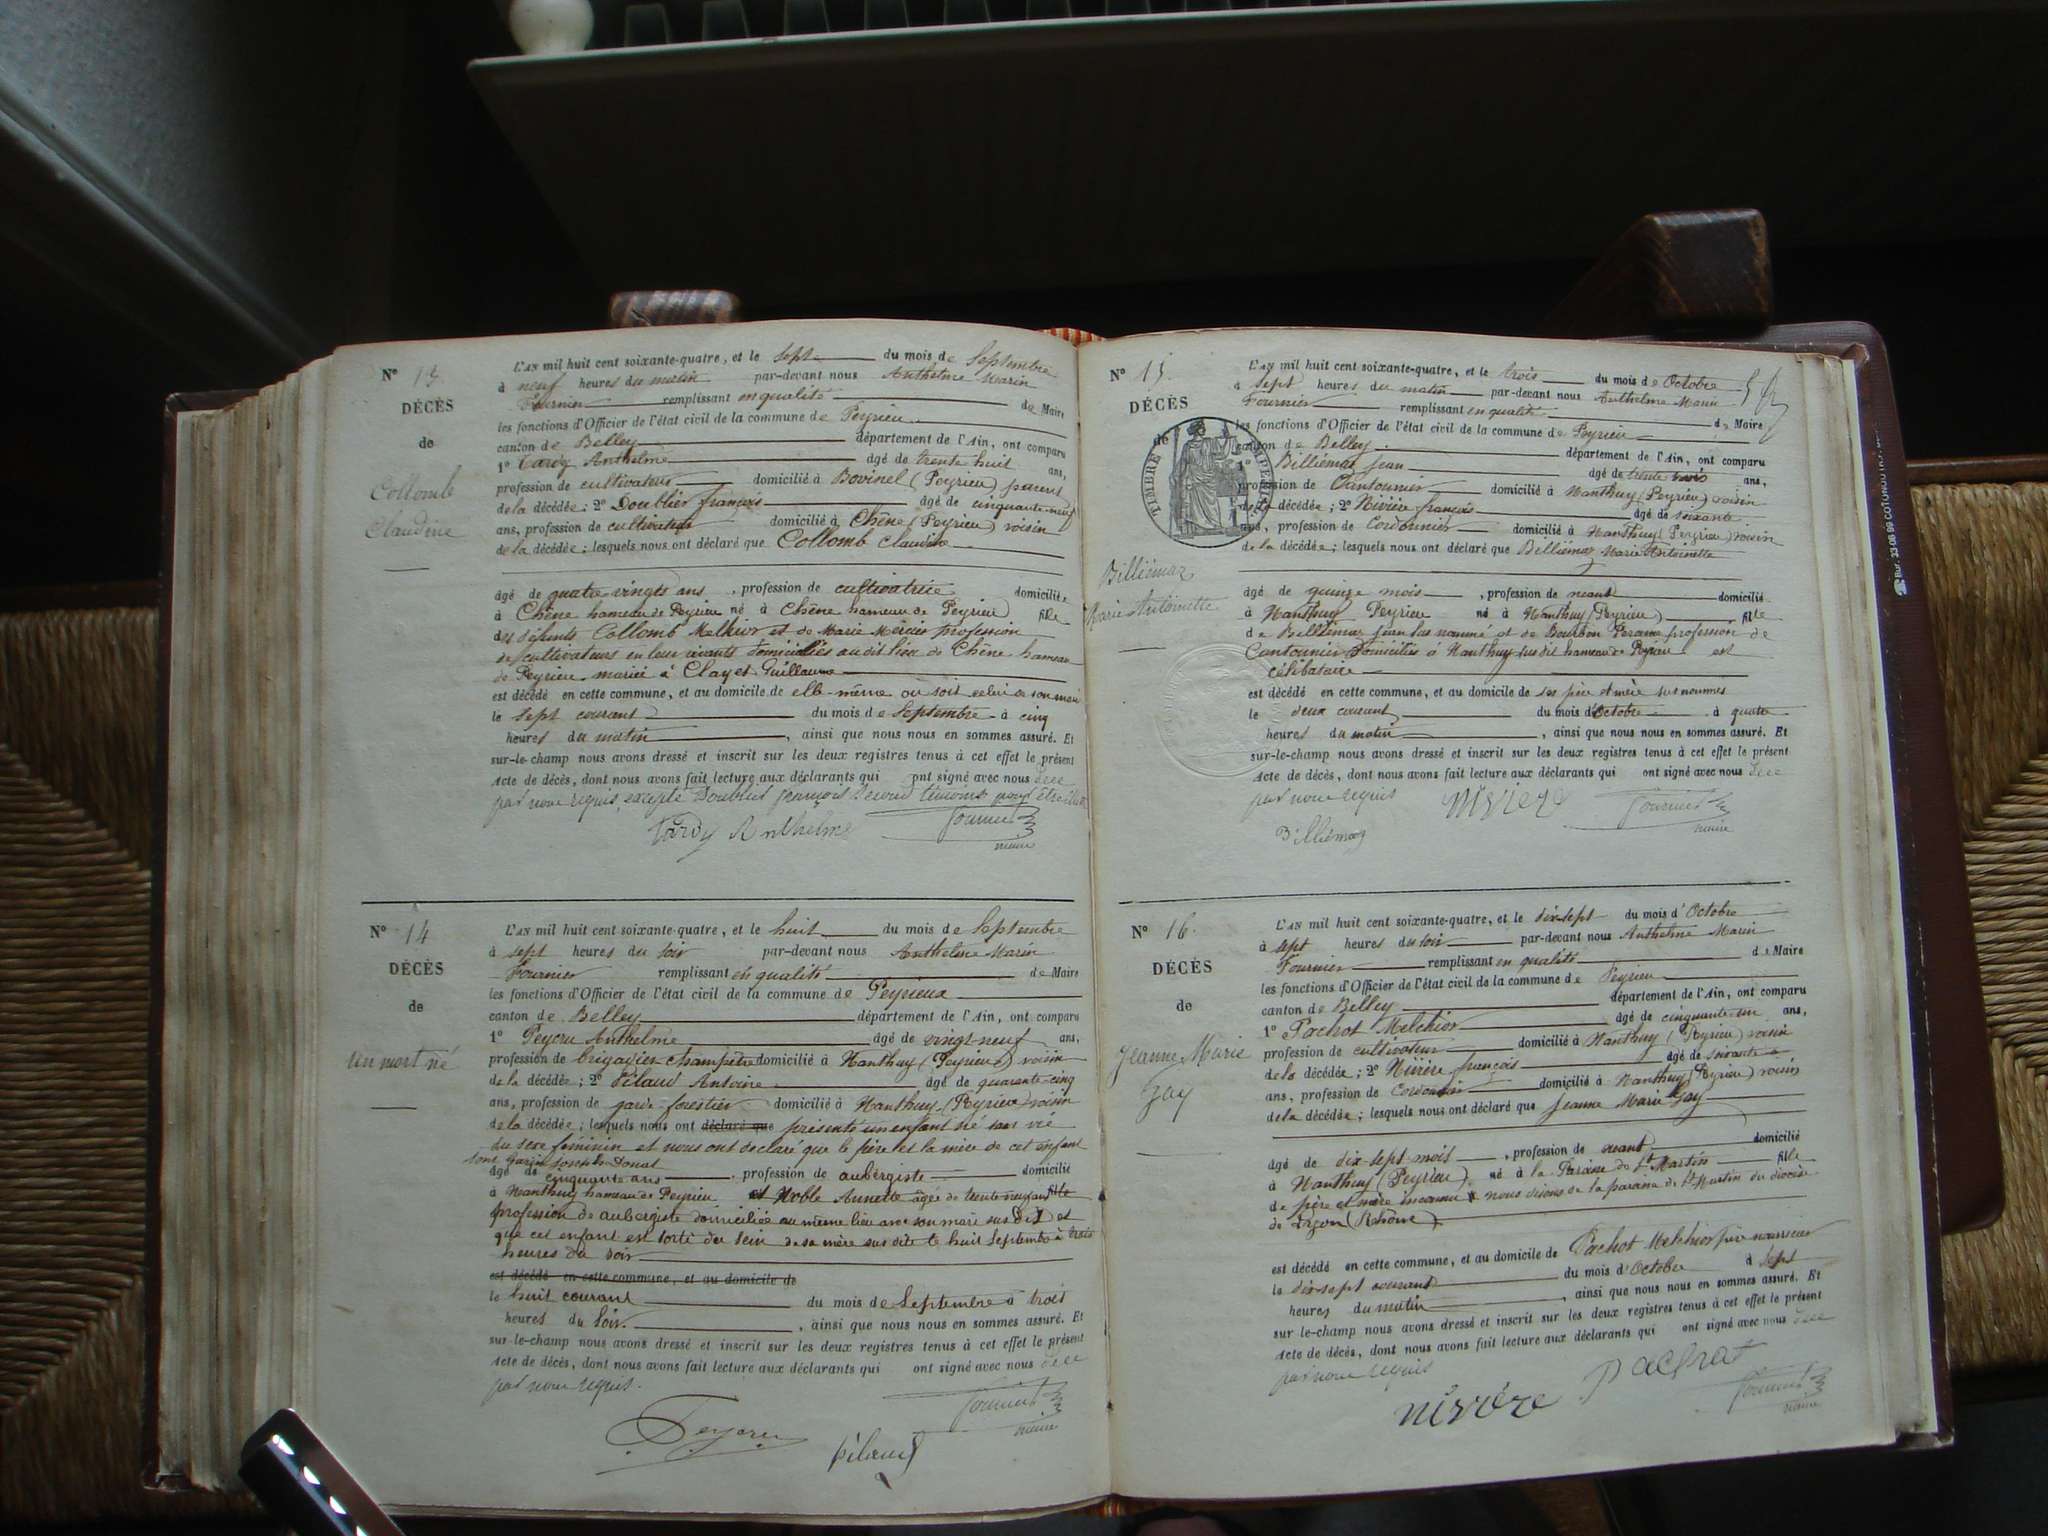 Nº 13.
DÉCÈS
de
Collomb
Claudine
L'AN mil huit cent soixante-quatre, et le sept du mois de Septembre
à neuf heures du matin par-devant nous Anthelme Marin
Fournier remplissant en qualité de Maire
les fonctions d'Officier de l'état civil de la commune de Peyrieu
canton de Belley département de l'Ain, ont comparu
1º Tardy Anthelme âgé de trente huit ans,
profession de cultivateur domicilié à Bovinel (Peyrieu) parent
de la décédée; 2º Doublier françois âgé de cinquante-neuf
ans, profession de cultivateur domicilié à Chêne (Peyrieu) voisin
de la décédée; lesquels nous ont déclaré que Collomb Claudine
âgé de quatre vingts ans, profession de cultivatrice domiciliée
à Chêne hameau de Peyrieu né à Chêne hameau de Peyrieu fille
des défunts Collomb Melkior et de Marie Mercier profession
de cultivateurs en leur vivants domiciliés audit lieu de Chêne hameau
de Peyrieu mariée à Clayet Guillaume
est décédé en cette commune, et au domicile de elle-même ou soit celui de son mari
le sept courant du mois de Septembre à cinq
heures du matin, ainsi que nous nous en sommes assuré. Et
sur-le-champ nous avons dressé et inscrit sur les deux registres tenus à cet effet le présent
acte de décès, dont nous avons fait lecture aux déclarants qui ont signé avec nous de ce
par nous requis, excepté Doublier françois second témoins pour être
Tardy Anthelme Fournier
maire
Nº 14
DÉCÈS
de
un mort né
L'AN mil huit cent soixante-quatre, et le huit du mois de Septembre
à sept heures du soir par-devant nous Anthelme Marin
Fournier remplissant en qualité de Maire
les fonctions d'Officier de l'état civil de la commune de Peyrieux
canton de Belley département de l'Ain, ont comparu
1º Peycru Anthelme âgé de vingt neuf ans,
profession de brigadier champêtre domicilié à Nanthuy (Peyrieux) voisin
de la décédée; 2º Pélaud Antoine âgé de quarante-cinq
ans, profession de garde forestier domicilié à Nanthuy (Peyrieux) voisin
de la décédée; lesquels nous ont déclaré que présenté un enfant né sans vie
du sexe féminin et nous ont déclaré que le père et la mère de cet enfant
sont Garin Joseph Donat
âgé de cinquante ans, profession de aubergiste domicilié
à Nanthuy hameau de Peyrieu et Noble Annette âgée de trente neuf ans fille
profession de aubergiste domiciliée au même lieu avec son mari sus dit et
que cet enfant est sorti du sein de sa mère sus dite le huit Septembre à trois
heures du soir
est décédé en cette commune, et au domicile de
le huit courant du mois de Septembre à trois
heures du soir, ainsi que nous nous en sommes assuré. Et
sur-le-champ nous avons dressé et inscrit sur les deux registres tenus à cet effet le présent
acte de décès, dont nous avons fait lecture aux déclarants qui ont signé avec nous de ce
par nous requis.
Fournier
maire
Peycru Pélaud
Nº 15.
DÉCÈS
de
TIMBRE IMPERIAL
Billiémaz
Marie Antoinette
L'AN mil huit cent soixante-quatre, et le trois du mois de Octobre
à sept heures du matin par-devant nous Anthelme Marin
Fournier remplissant en qualité de Maire
les fonctions d'Officier de l'état civil de la commune de Peyrieu
canton de Belley département de l'Ain, ont comparu
1º Billiémaz Jean âgé de trente trois ans,
profession de Cantonnier domicilié à Nanthuy (Peyrieu) voisin
de la décédée; 2º Nivière françois âgé de soixante
ans, profession de Cordonnier domicilié à Nanthuy (Peyrieu) voisin
de la décédée; lesquels nous ont déclaré que Billiémaz Marie Antoinette
âgé de quinze mois, profession de néant domicilié
à Nanthuy Peyrieu né à Nanthuy (Peyrieu) fille
de Billiémaz Jean sus nommé et de Bourbon Perame profession de
Cantonnier domiciliés à Nanthuy sus dit hameau de Peyrieu est
célibataire
est décédé en cette commune, et au domicile de ses père et mère sus nommés
le deux courant du mois d'Octobre à quatre
heures du matin, ainsi que nous nous en sommes assuré. Et
sur-le-champ nous avons dressé et inscrit sur les deux registres tenus à cet effet le présent
acte de décès, dont nous avons fait lecture aux déclarants qui ont signé avec nous de ce
par nous requis Nivière Fournier
maire
Billiémaz
Nº 16.
DÉCÈS
de
Jeanne Marie
Gay
L'AN mil huit cent soixante-quatre, et le dix-sept du mois d'Octobre
à sept heures du soir par-devant nous Anthelme Marin
Fournier remplissant en qualité de Maire
les fonctions d'Officier de l'état civil de la commune de Peyrieu
canton de Belley département de l'Ain, ont comparu
1º Pachot Melchior âgé de cinquante-un ans,
profession de cultivateur domicilié à Nanthuy (Peyrieu) voisin
de la décédée; 2º Nivière françois âgé de soixante
ans, profession de Cordonnier domicilié à Nanthuy (Peyrieu) voisin
de la décédée; lesquels nous ont déclaré que Jeanne Marie Gay
âgé de dix-sept mois, profession de néant domicilié
à Nanthuy (Peyrieu) né à la Paroisse de St Martin fille
de père et mère inconnu nous disons de la paroisse de St Martin du diocèse
de Lyon (Rhône)
est décédé en cette commune, et au domicile de Pachot Melchior père nourricier
le dix-sept courant du mois d'Octobre à sept
heures du matin, ainsi que nous nous en sommes assuré. Et
sur-le-champ nous avons dressé et inscrit sur les deux registres tenus à cet effet le présent
acte de décès, dont nous avons fait lecture aux déclarants qui ont signé avec nous de ce
par nous requis
nivière Pachot Fournier
maire